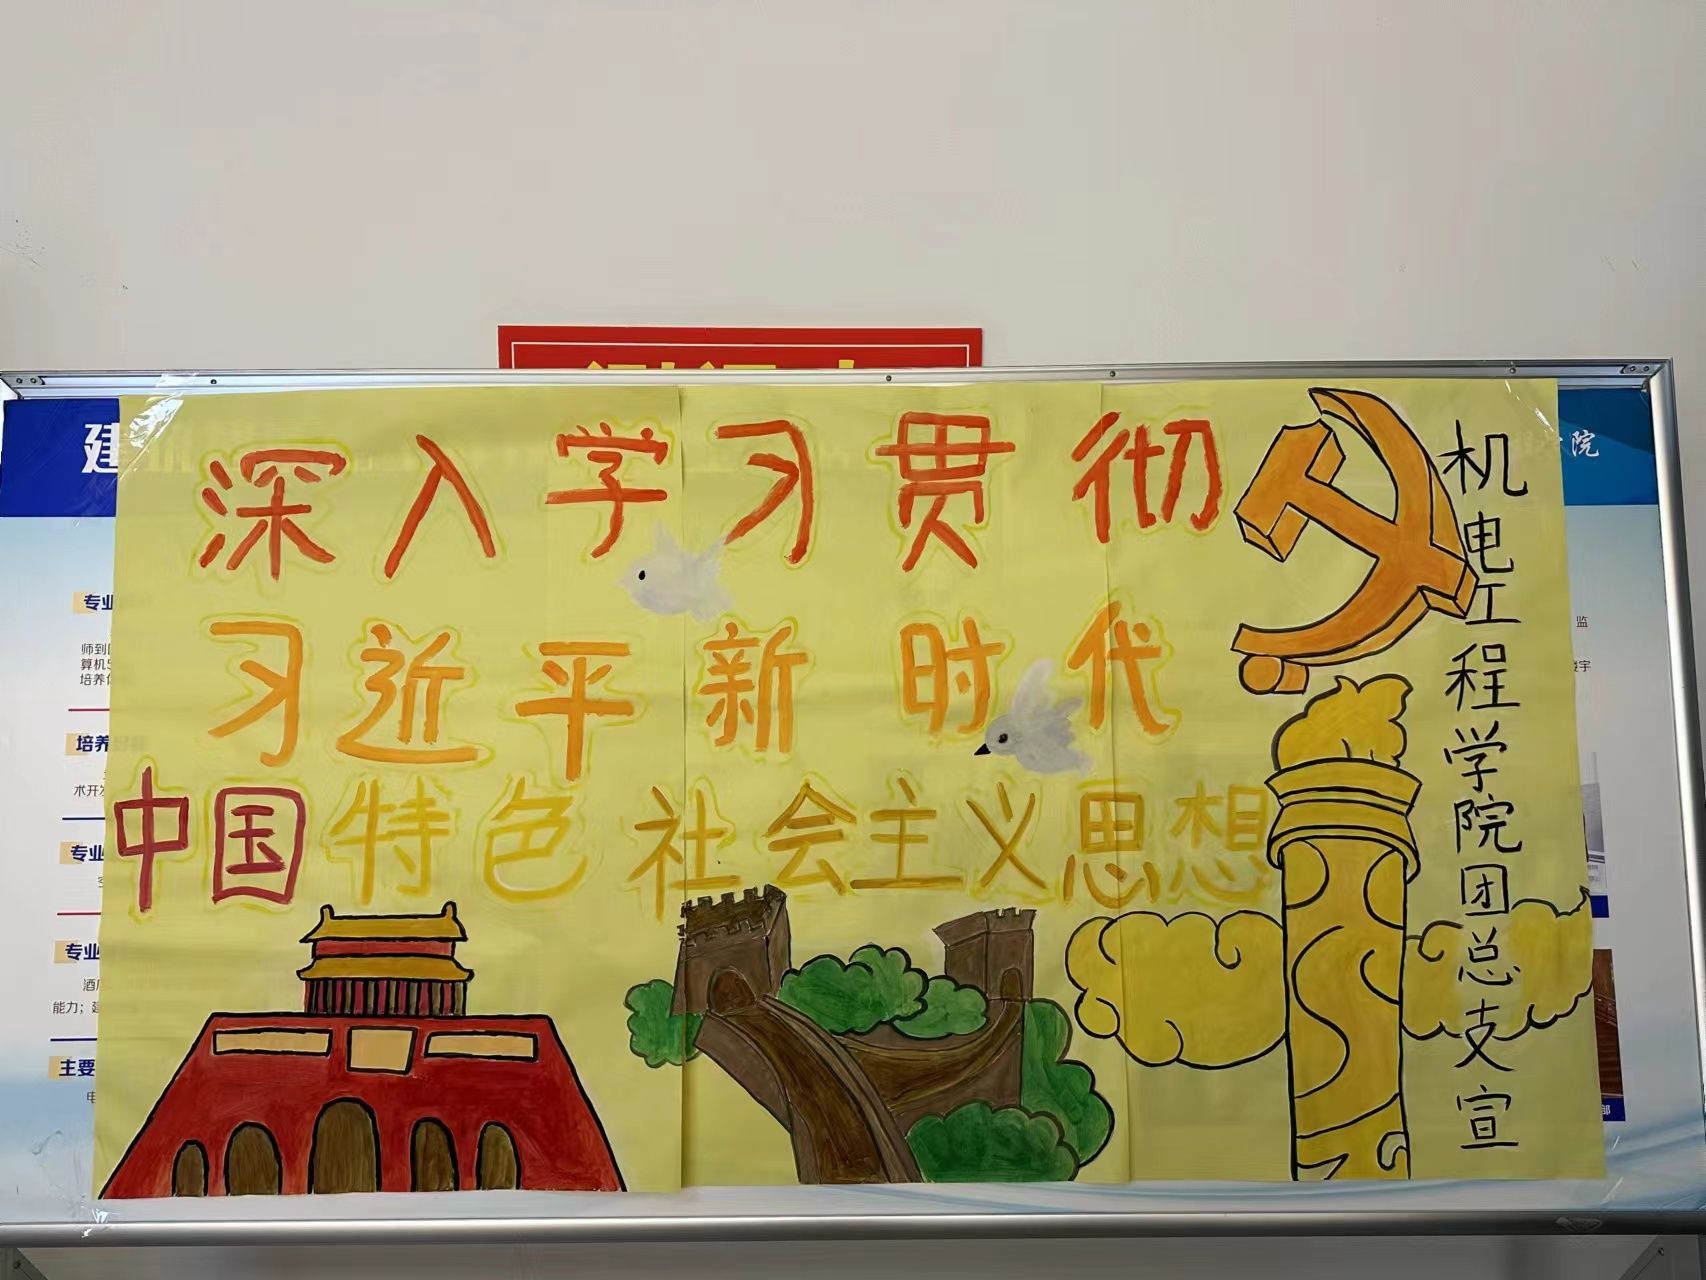 深入学习贯彻
习近平新时代
中国特色社会主义思想
机电工程学院团总支宣
建
院
专业
师到
算机
培养
培养
术开发
专业
专业
酒店
能力；建
主要
电
监
楼宇
部